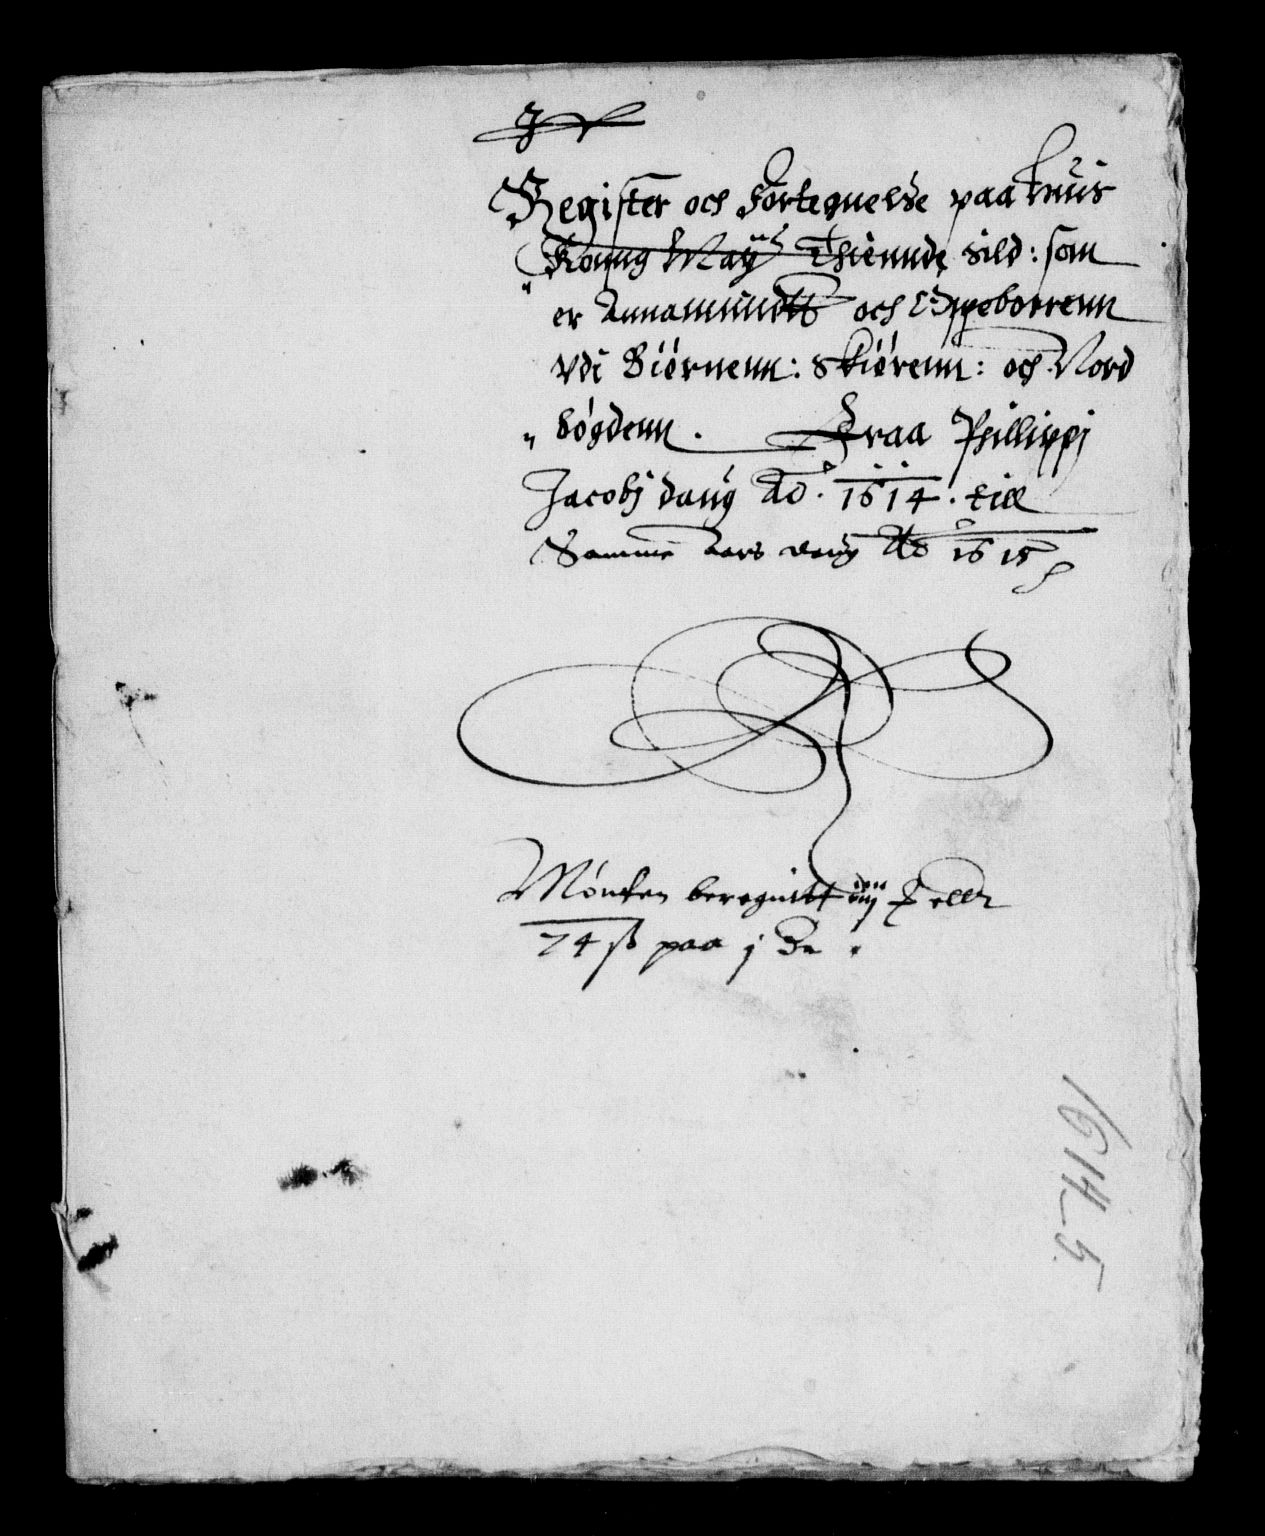 Register och Fortegnelse paa
Konng Maytz Thiennde Sild: som
er Annammditt och Oppeborrenn
Vdi Biørnenn: Skiørenn: och Nord
bøgdenn. Fraa Phillippj
Jacobj daug Ao. 1614. till
Samme aars daug Ao 1615
Mønten beregnitt iiij
74 ß paa j Dr.
1614-5